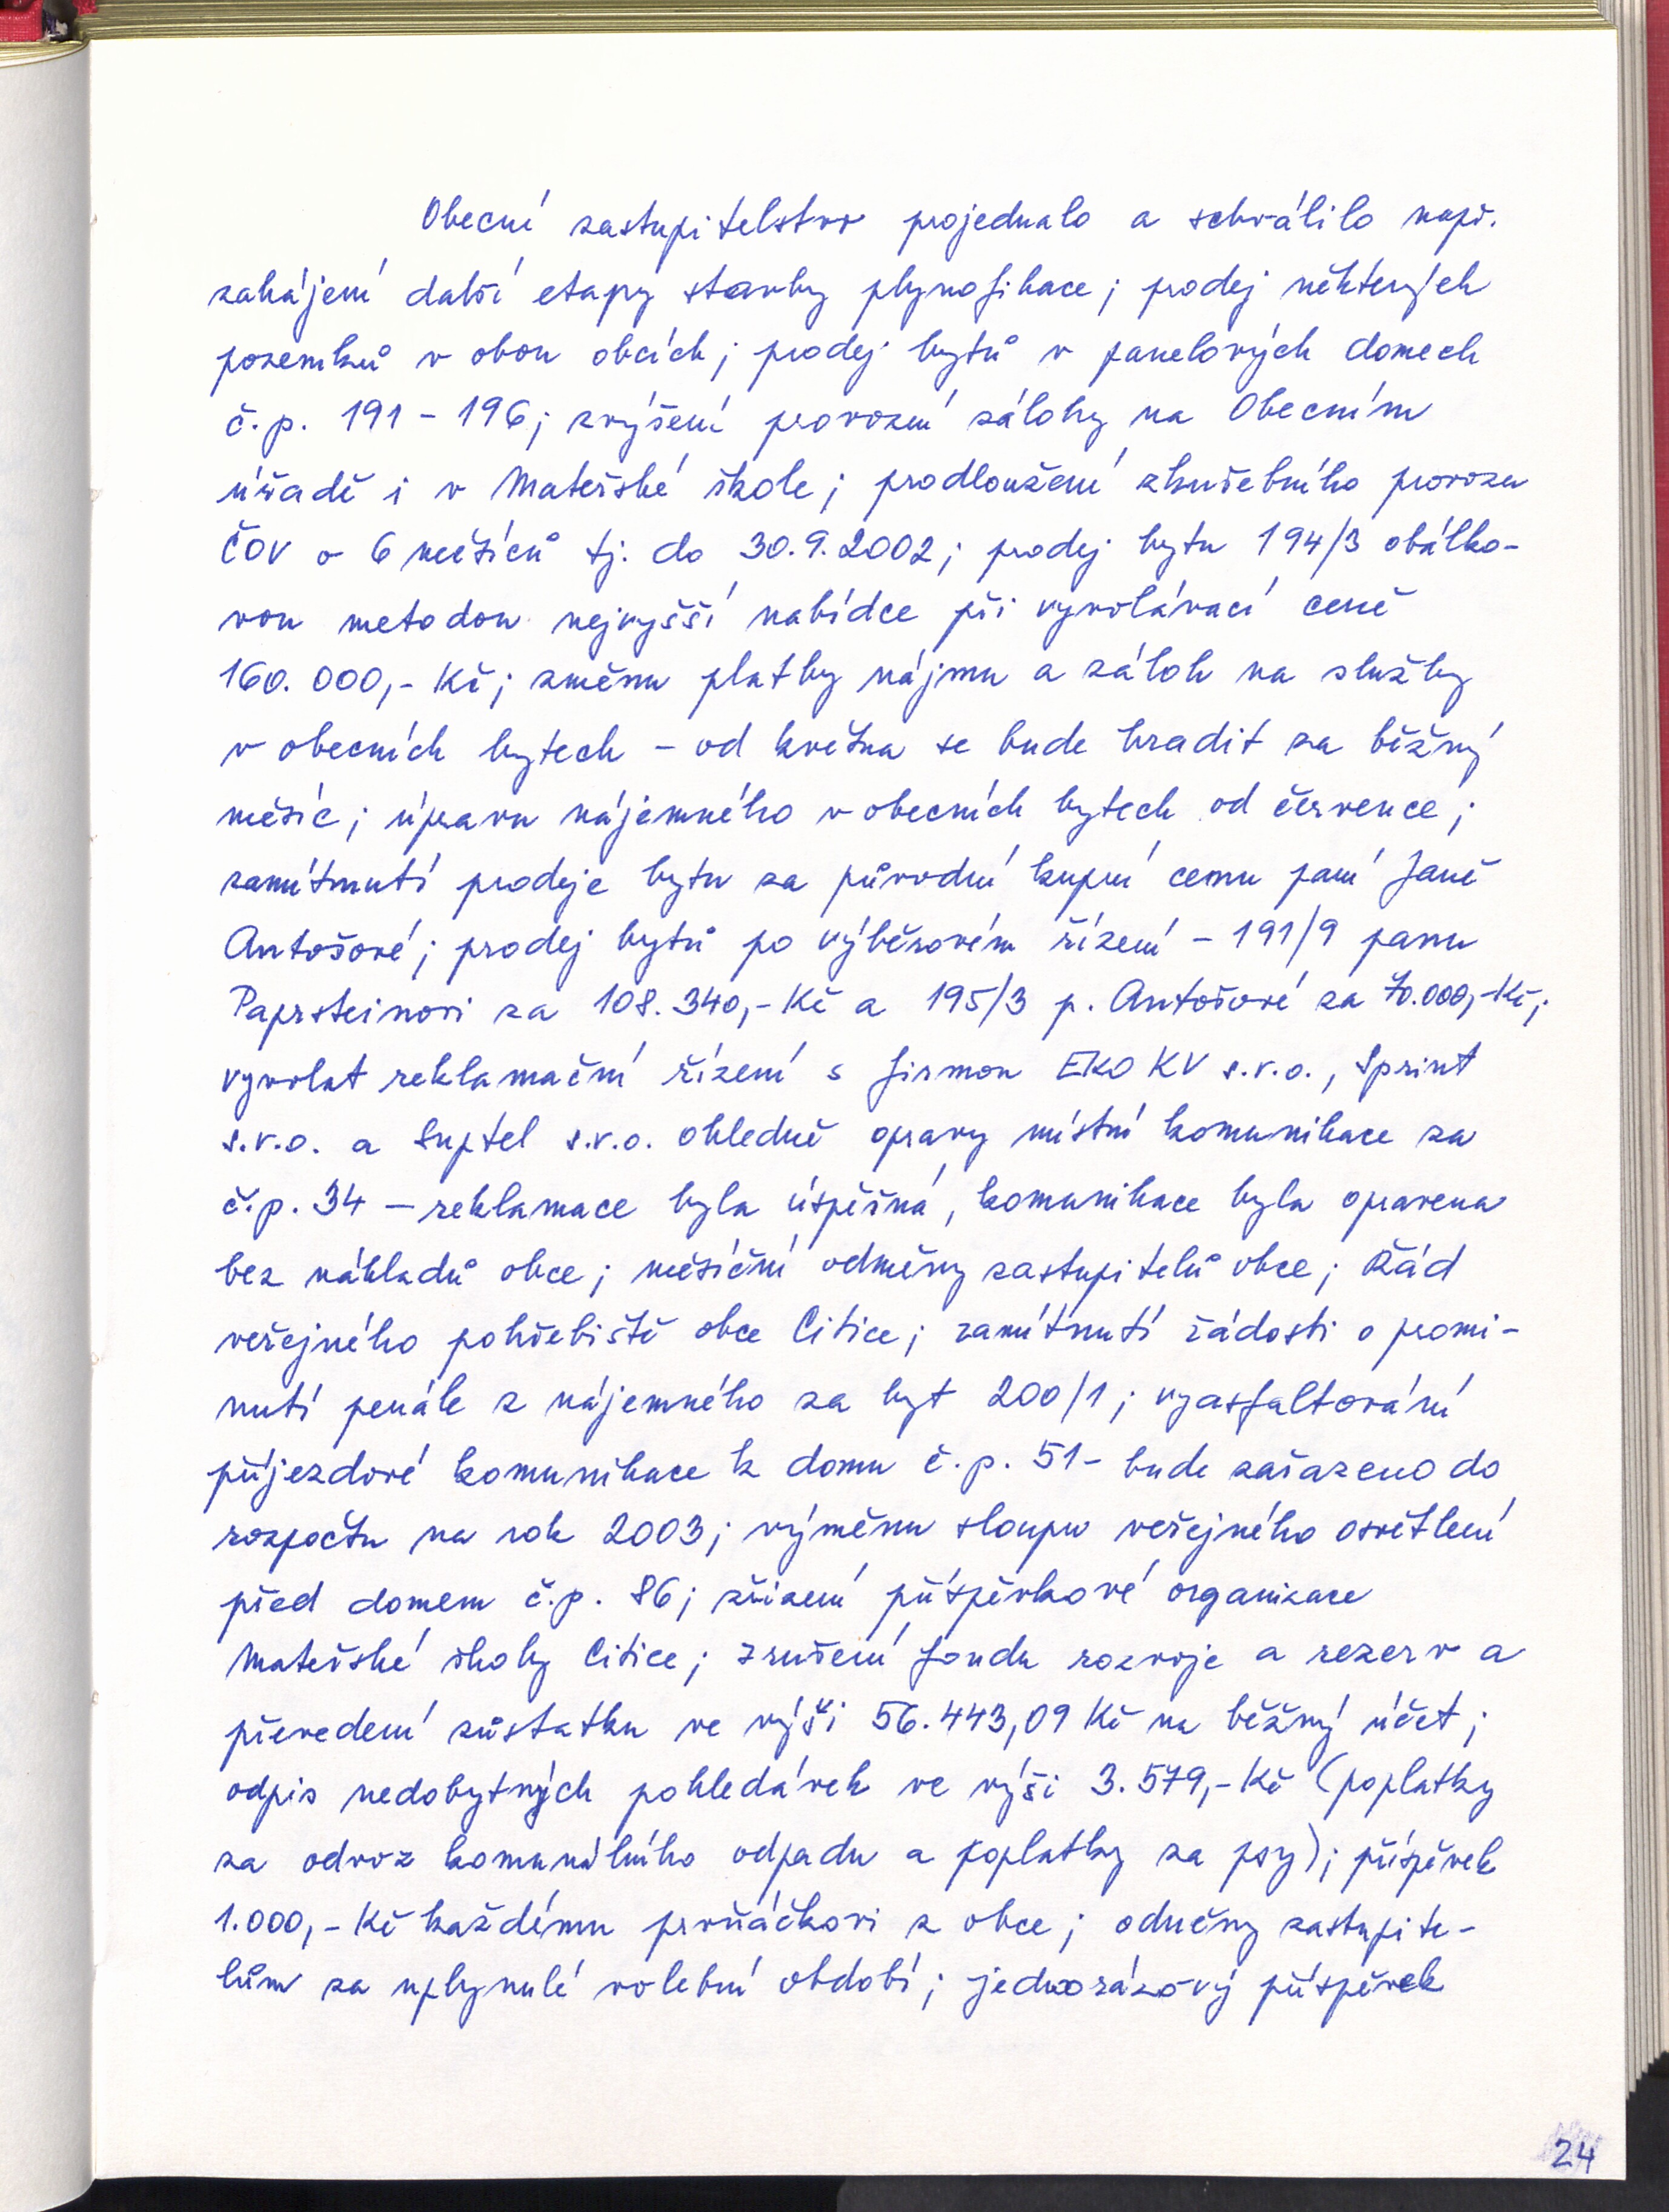 Obecní zastupitelstvo projednalo a schválilo např.
zahájení další etapy stavby plynofikace; prodej některých
pozemků v obou obcích; prodej bytů v panelových domech
č.p. 191 - 196; zvýšení provozní zálohy na Obecním
úřadě i v Mateřské škole; prodloužení zkušebního provozu
ČOV o 6 měsíců tj. do 30.9.2002; prodej bytu 194/3 obálko-
vou metodou nejvyšší nabídce při vyvolávací ceně
160.000,- Kč; změnu platby nájmu a záloh na služby
v obecních bytech - od května se bude hradit za běžný
měsíc; úpravu nájemného v obecních bytech od července;
zamítnutí prodeje bytu za původní kupní cenu paní Janě
Antošové; prodej bytů po výběrovém řízení - 191/9 panu
Paprsteinovi za 108.340,- Kč a 195/3 p. Antošové za 70.000,- Kč;
vyvolat reklamační řízení s firmou EKO KV s.r.o., Sprint
s.r.o. a Suptel s.r.o. ohledně opravy místní komunikace za
č.p. 34 - reklamace byla úspěšná, komunikace byla opravena
bez nákladů obce; měsíční odměny zastupitelů obce; Řád
veřejného pohřebiště obce Citice; zamítnutí žádosti o promi-
nutí penále z nájemného za byt 200/1; vyasfaltování
příjezdové komunikace k domu č.p. 51 - bude zařazeno do
rozpočtu na rok 2003; výměnu sloupu veřejného osvětlení
před domem č.p. 86; zřízení příspěvkové organizace
Mateřské školy Citice; zrušení fondu rozvoje a rezerv a
převedení zůstatku ve výši 56.443,09 Kč na běžný účet;
odpis nedobytných pohledávek ve výši 3.579,- Kč (poplatky
za odvoz komunálního odpadu a poplatky za psy); příspěvek
1.000,- Kč každému prvňáčkovi z obce; odměny zastupite-
lům za uplynulé volební období; jednorázový příspěvek
24